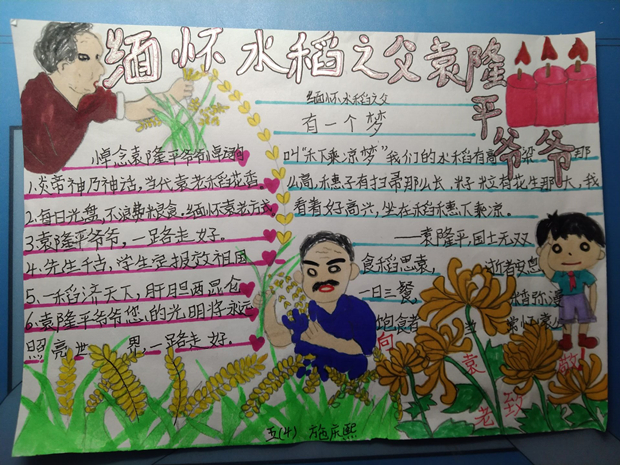 缅怀水稻之父袁隆平爷爷
缅怀水稻之父
有一个梦
悼念袁隆平爷爷
1.炎帝神乃神话,当代袁老稻花香。
2.每日光盘,不浪费粮食,缅怀袁老
3.袁隆平爷爷,一路走好。
4.先生千古,学生定报效祖国
5.一稻济天下,肝胆两昆仑
6.袁隆平爷爷您的光明将永远
照亮世界,一路走好。
叫"禾下乘凉梦"我们的水稻有高粱那
么高,穗子有扫帚那么长,籽粒有花生那大,我
看着好高兴,坐在稻穗下乘凉。
——袁隆平,国士无双
食稻思袁
一日三餐
饱食者
逝者安息
向袁老致敬
五(4) 施庆熙